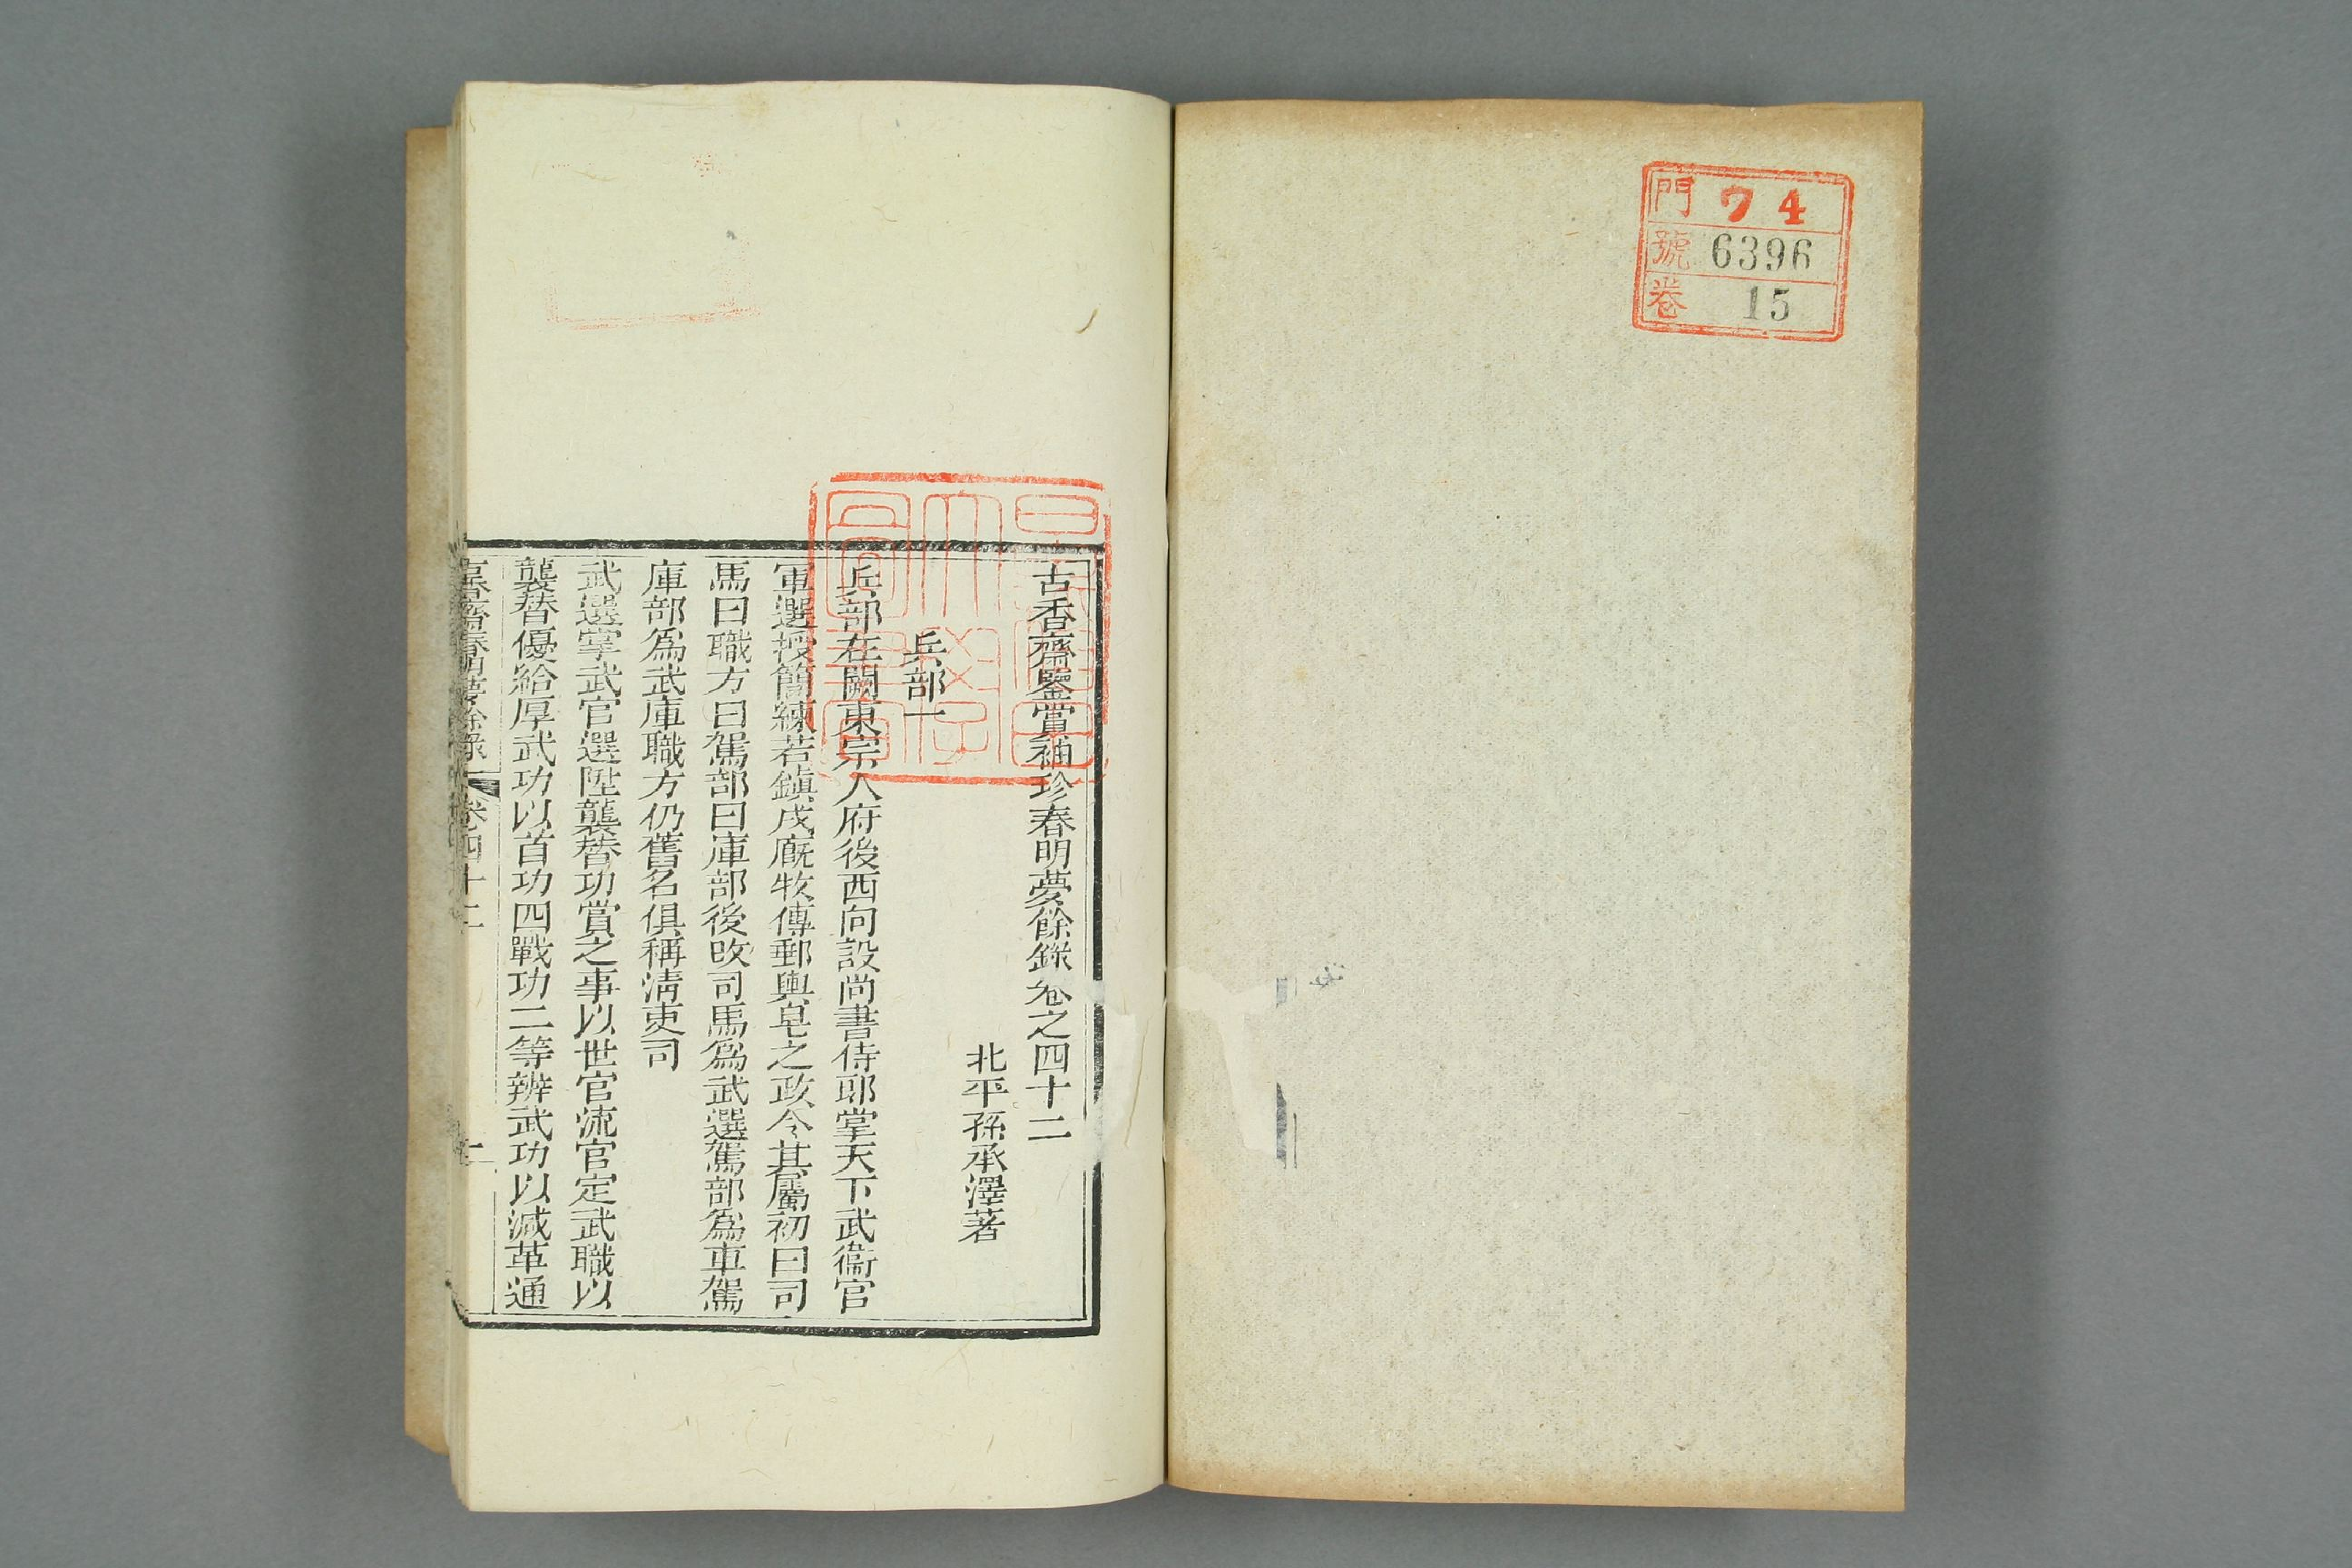 門 74
號 6396
卷 15
古香齋鑒賞袖珍春明夢餘錄卷之四十二
北平孫承澤著
兵部一
兵部在闕東宗人府後西向設尚書侍郎掌天下武衞官
軍選授簡練若鎮戍廐牧傳郵輿皂之政令其屬初曰司
馬曰職方曰駕部曰庫部後改司馬爲武選駕部爲車駕
庫部爲武庫職方仍舊名俱稱淸吏司
武選掌武官選陞襲替功賞之事以世官流官定武職以
襲替優給厚武功以首功四戰功二等辨武功以減革通
古香齋春明夢餘錄 卷四十二 一